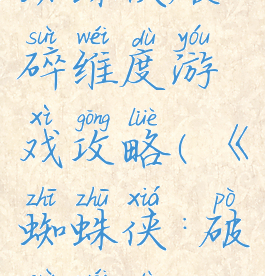 suì wéi dù yóu
碎维度游
xì gōng lüè
戏攻略(《
zhī zhū xiá pò
蜘蛛侠:破